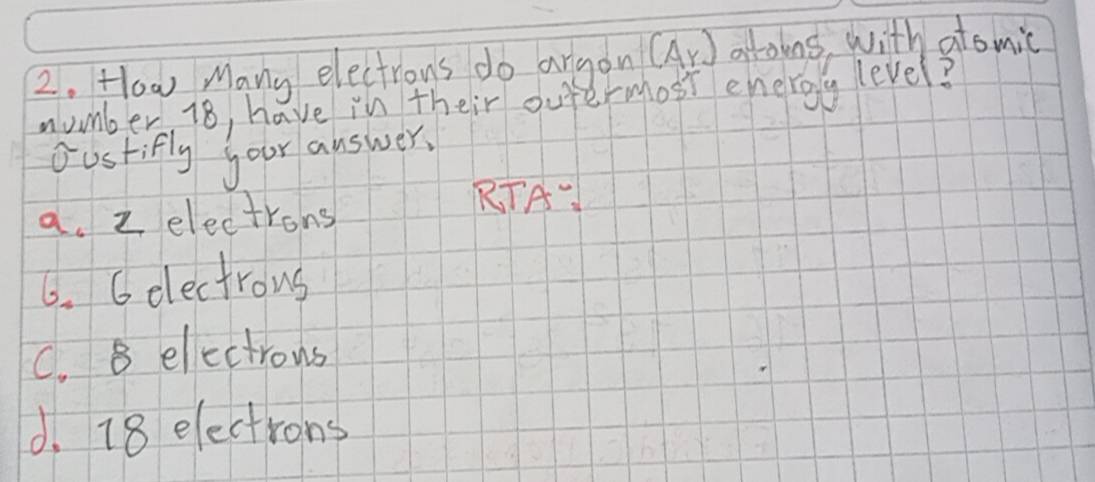 2. How Many electrons do argon (Ar) atoms, with atomic
number 18, have in their outermost energy level?
Justifly your answer.
RTA:
a. 2 electrons
b. 6 electrons
c. 8 electrons
d. 18 electrons